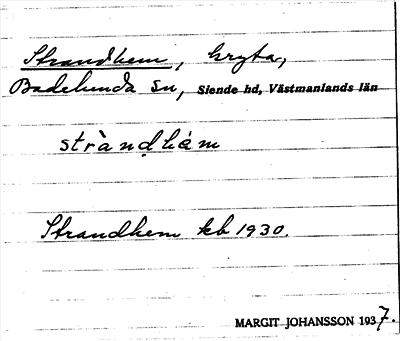 Strandhem, hryta,
Badelunda Sn, Siende hd, Västmanlands län
stràndhém
Strandhem kb 1930.
MARGIT JOHANSSON 1937.